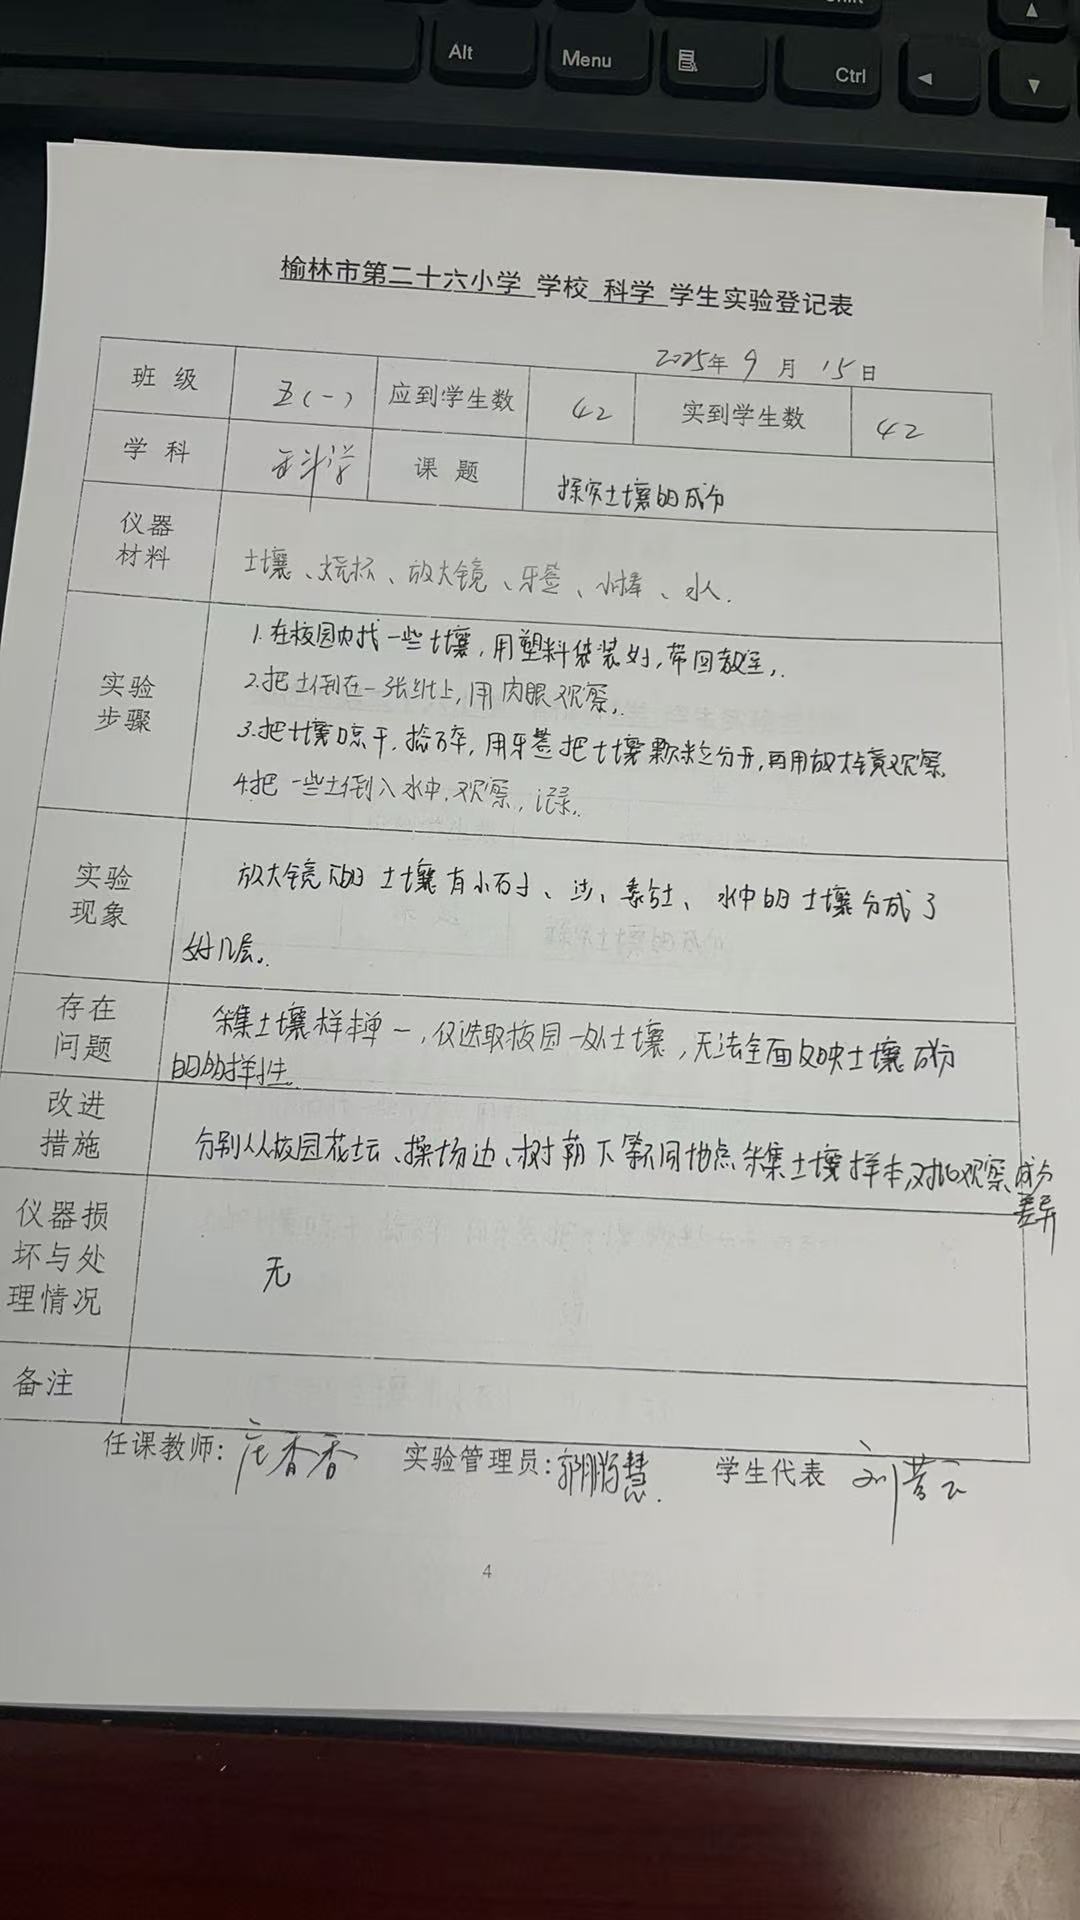 Alt
Menu
Ctrl
榆林市第二十六小学 学校 科学 学生实验登记表
2025年 9 月 15日
班 级 五(一) 应到学生数 42 实到学生数 42
学 科 科学 课 题 探究土壤的成分
仪器
材料
土壤、烧杯、放大镜、牙签、木棒、水.
实验
步骤
1.在校园内找一些土壤,用塑料袋装好,带回教室.
2.把土倒在一张纸上,用肉眼观察.
3.把土壤晾干,捻碎,用牙签把土壤颗粒分开,再用放大镜观察
4.把一些土倒入水中,观察,记录.
实验
现象
放大镜下的土壤有小石子、沙、黏土、水中的土壤分成了
好几层.
存在
问题
采集土壤样本单一,仅选取校园一处土壤,无法全面反映土壤成分
的多样性.
改进
措施
分别从校园花坛、操场边、树荫下等不同地点采集土壤样本,对比观察成分
差异
仪器损
坏与处
理情况
无
备注
任课教师: 庄香香 实验管理员: 慧. 学生代表 刘
4